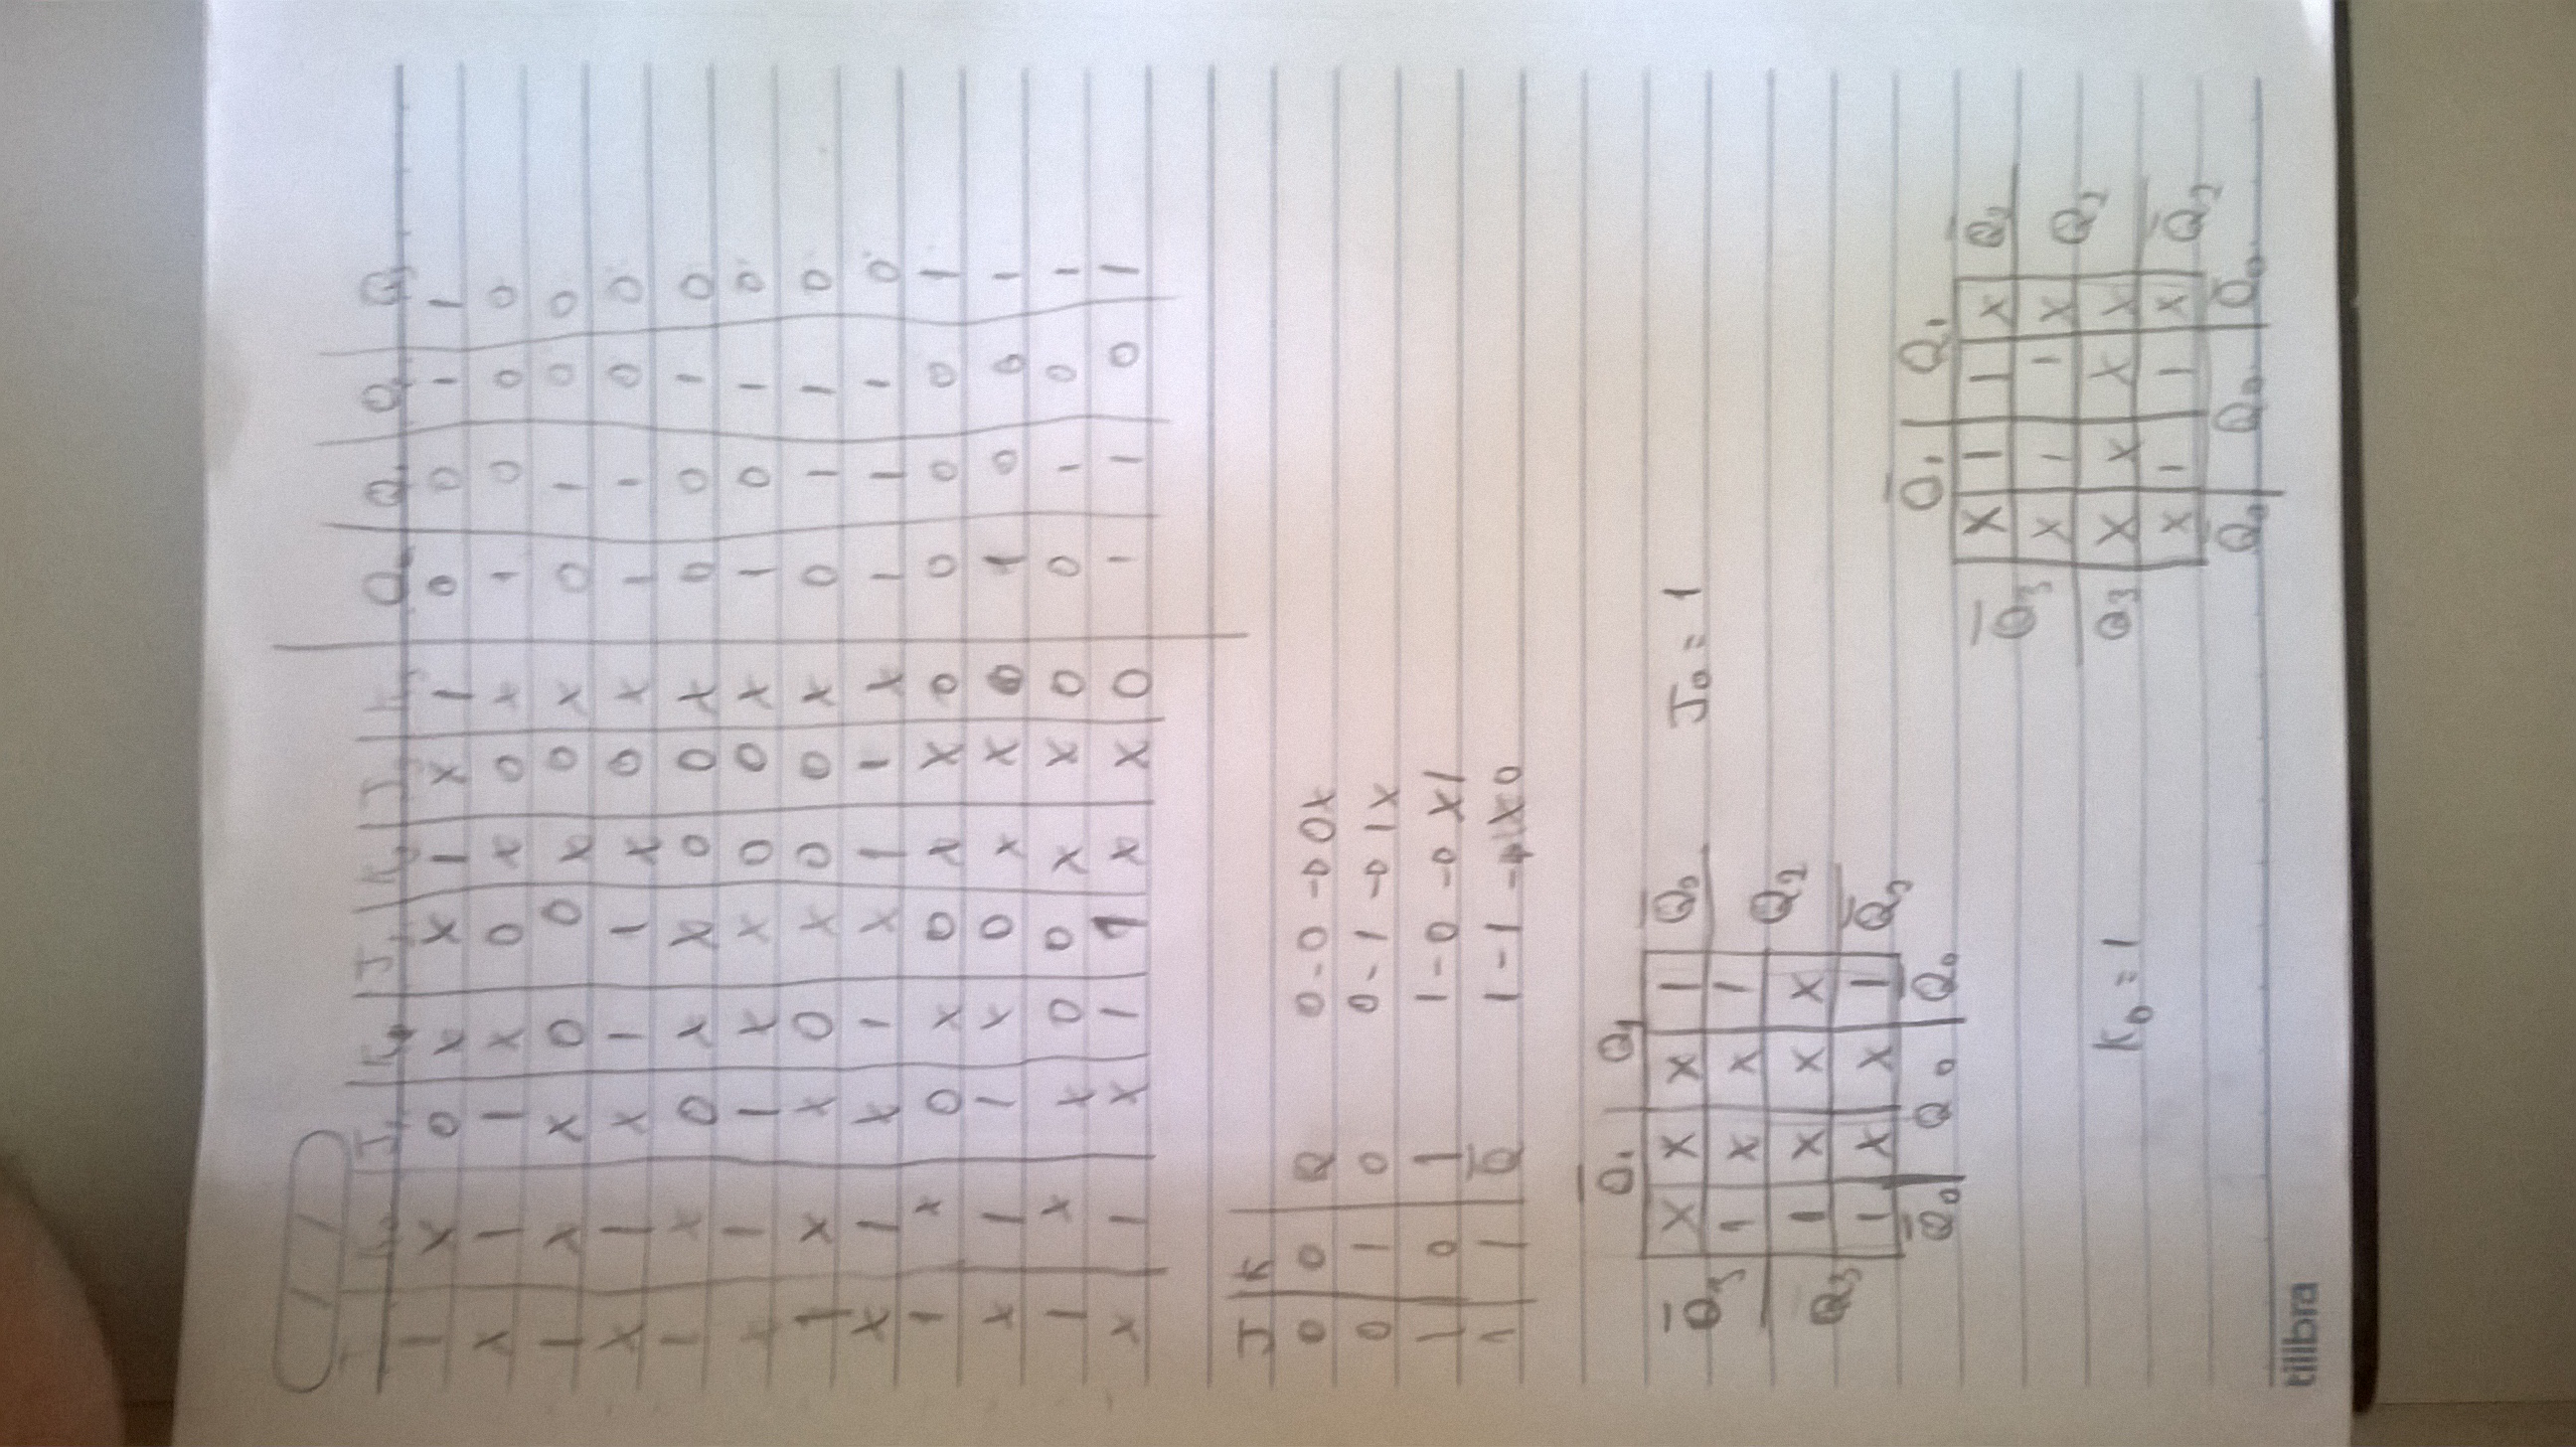 J K₀ J₁ K₁ J₂ K₂ J₃ K₃ Q₀ Q₁ Q₂ Q₃
1 x 0 x x 1 x 1 0 0 1 1
x 1 1 x 0 x 0 x 1 0 0 0
1 x x 0 0 x 0 x 0 1 0 0
x 1 x 1 1 x 0 x 1 1 0 0
1 x 0 x x 0 0 x 0 0 1 0
x 1 1 x x 0 0 x 1 0 1 0
1 x x 0 x 0 0 x 0 1 1 0
x 1 x 1 x 1 1 x 1 1 1 0
1 x 0 x 0 x x 0 0 0 0 1
x 1 1 x 0 x x 0 1 0 0 1
1 x x 0 0 x x 0 0 1 0 1
x 1 x 1 1 x x 0 1 1 0 1
J K
0 0 Q 0-0 → 0x
0 1 0 0-1 → 1x
1 0 1 1-0 → x1
1 1 Q̅ 1-1 → x0
Q̅₁ Q₁
x x x 1 Q̅₂
Q̅₃ 1 x x 1
J₀ = 1
Q₂
Q₃ 1 x x x
1 x x 1 Q̅₂
Q̅₀ Q₀ Q̅₀
Q̅₁ Q₁
x 1 1 x Q̅₂
Q̅₃ x 1 1 x
Q₂
K₀ = 1
Q₃ x x x x
x 1 1 x Q̅₂
Q̅₀ Q₀ Q̅₀
tilibra